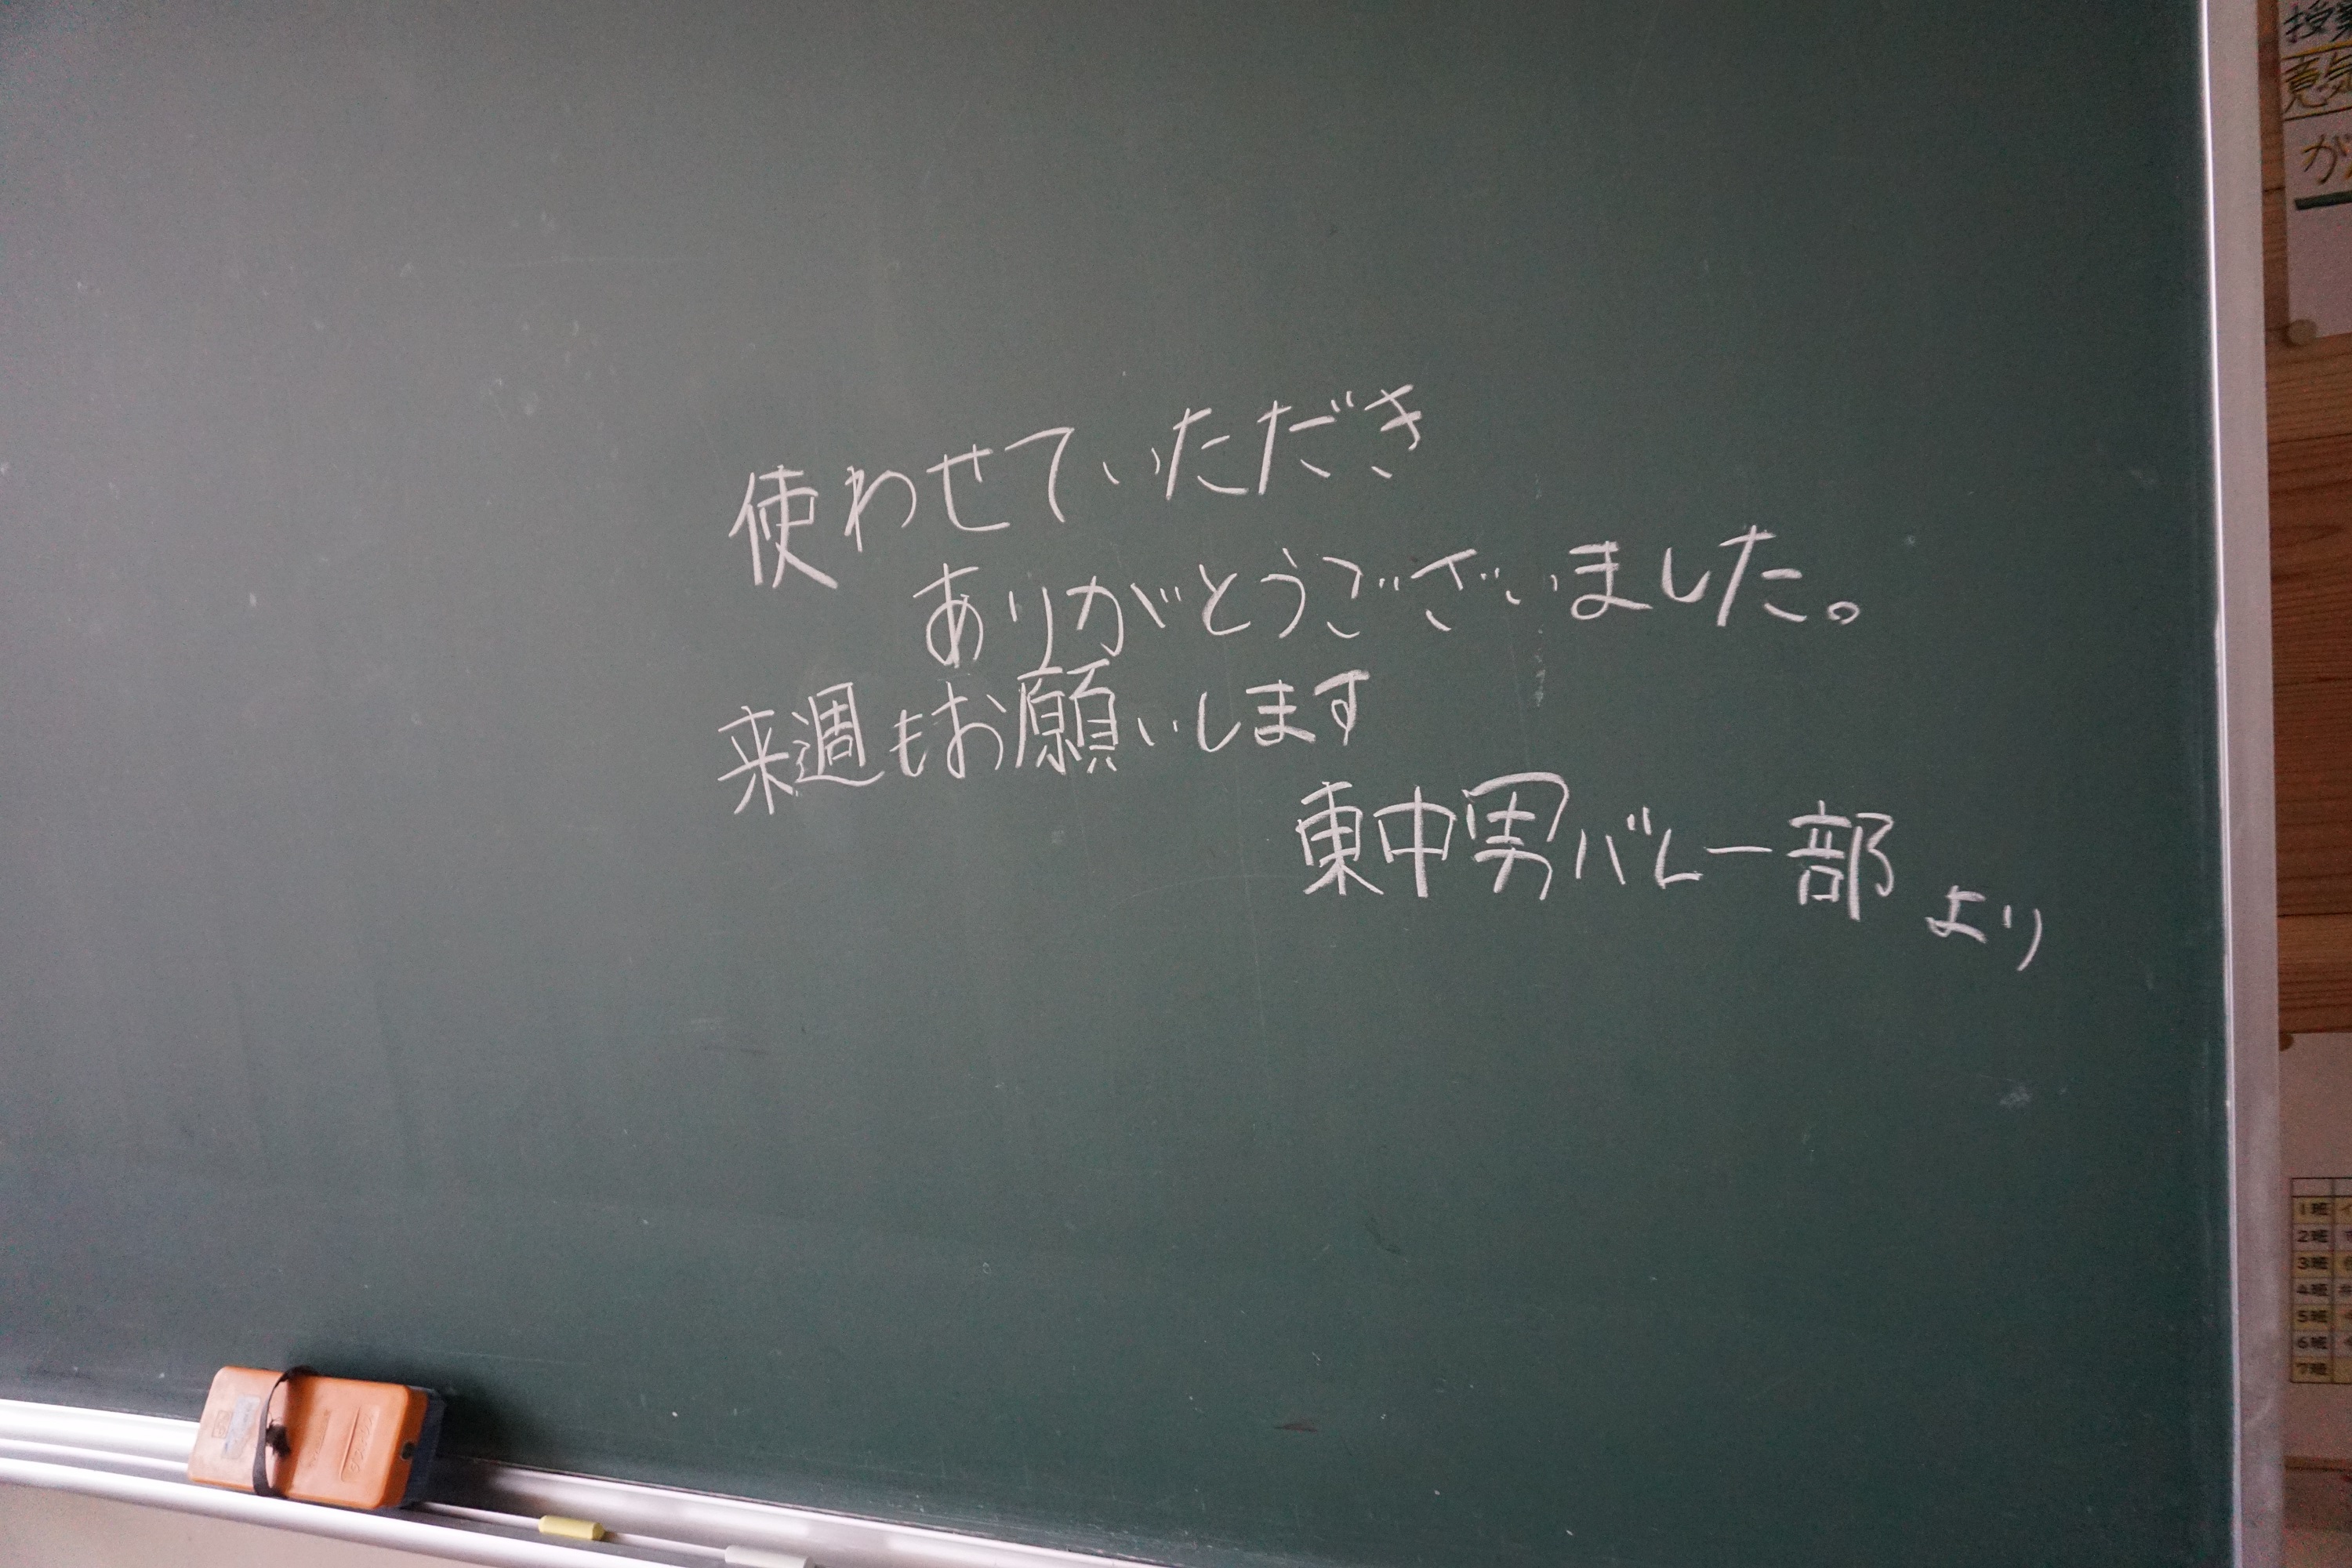 使わせていただき
ありがとうございました。
来週もお願いします
東中男バレー部 より
意気
が
1班
2班
3班
4班
5班
6班
7班